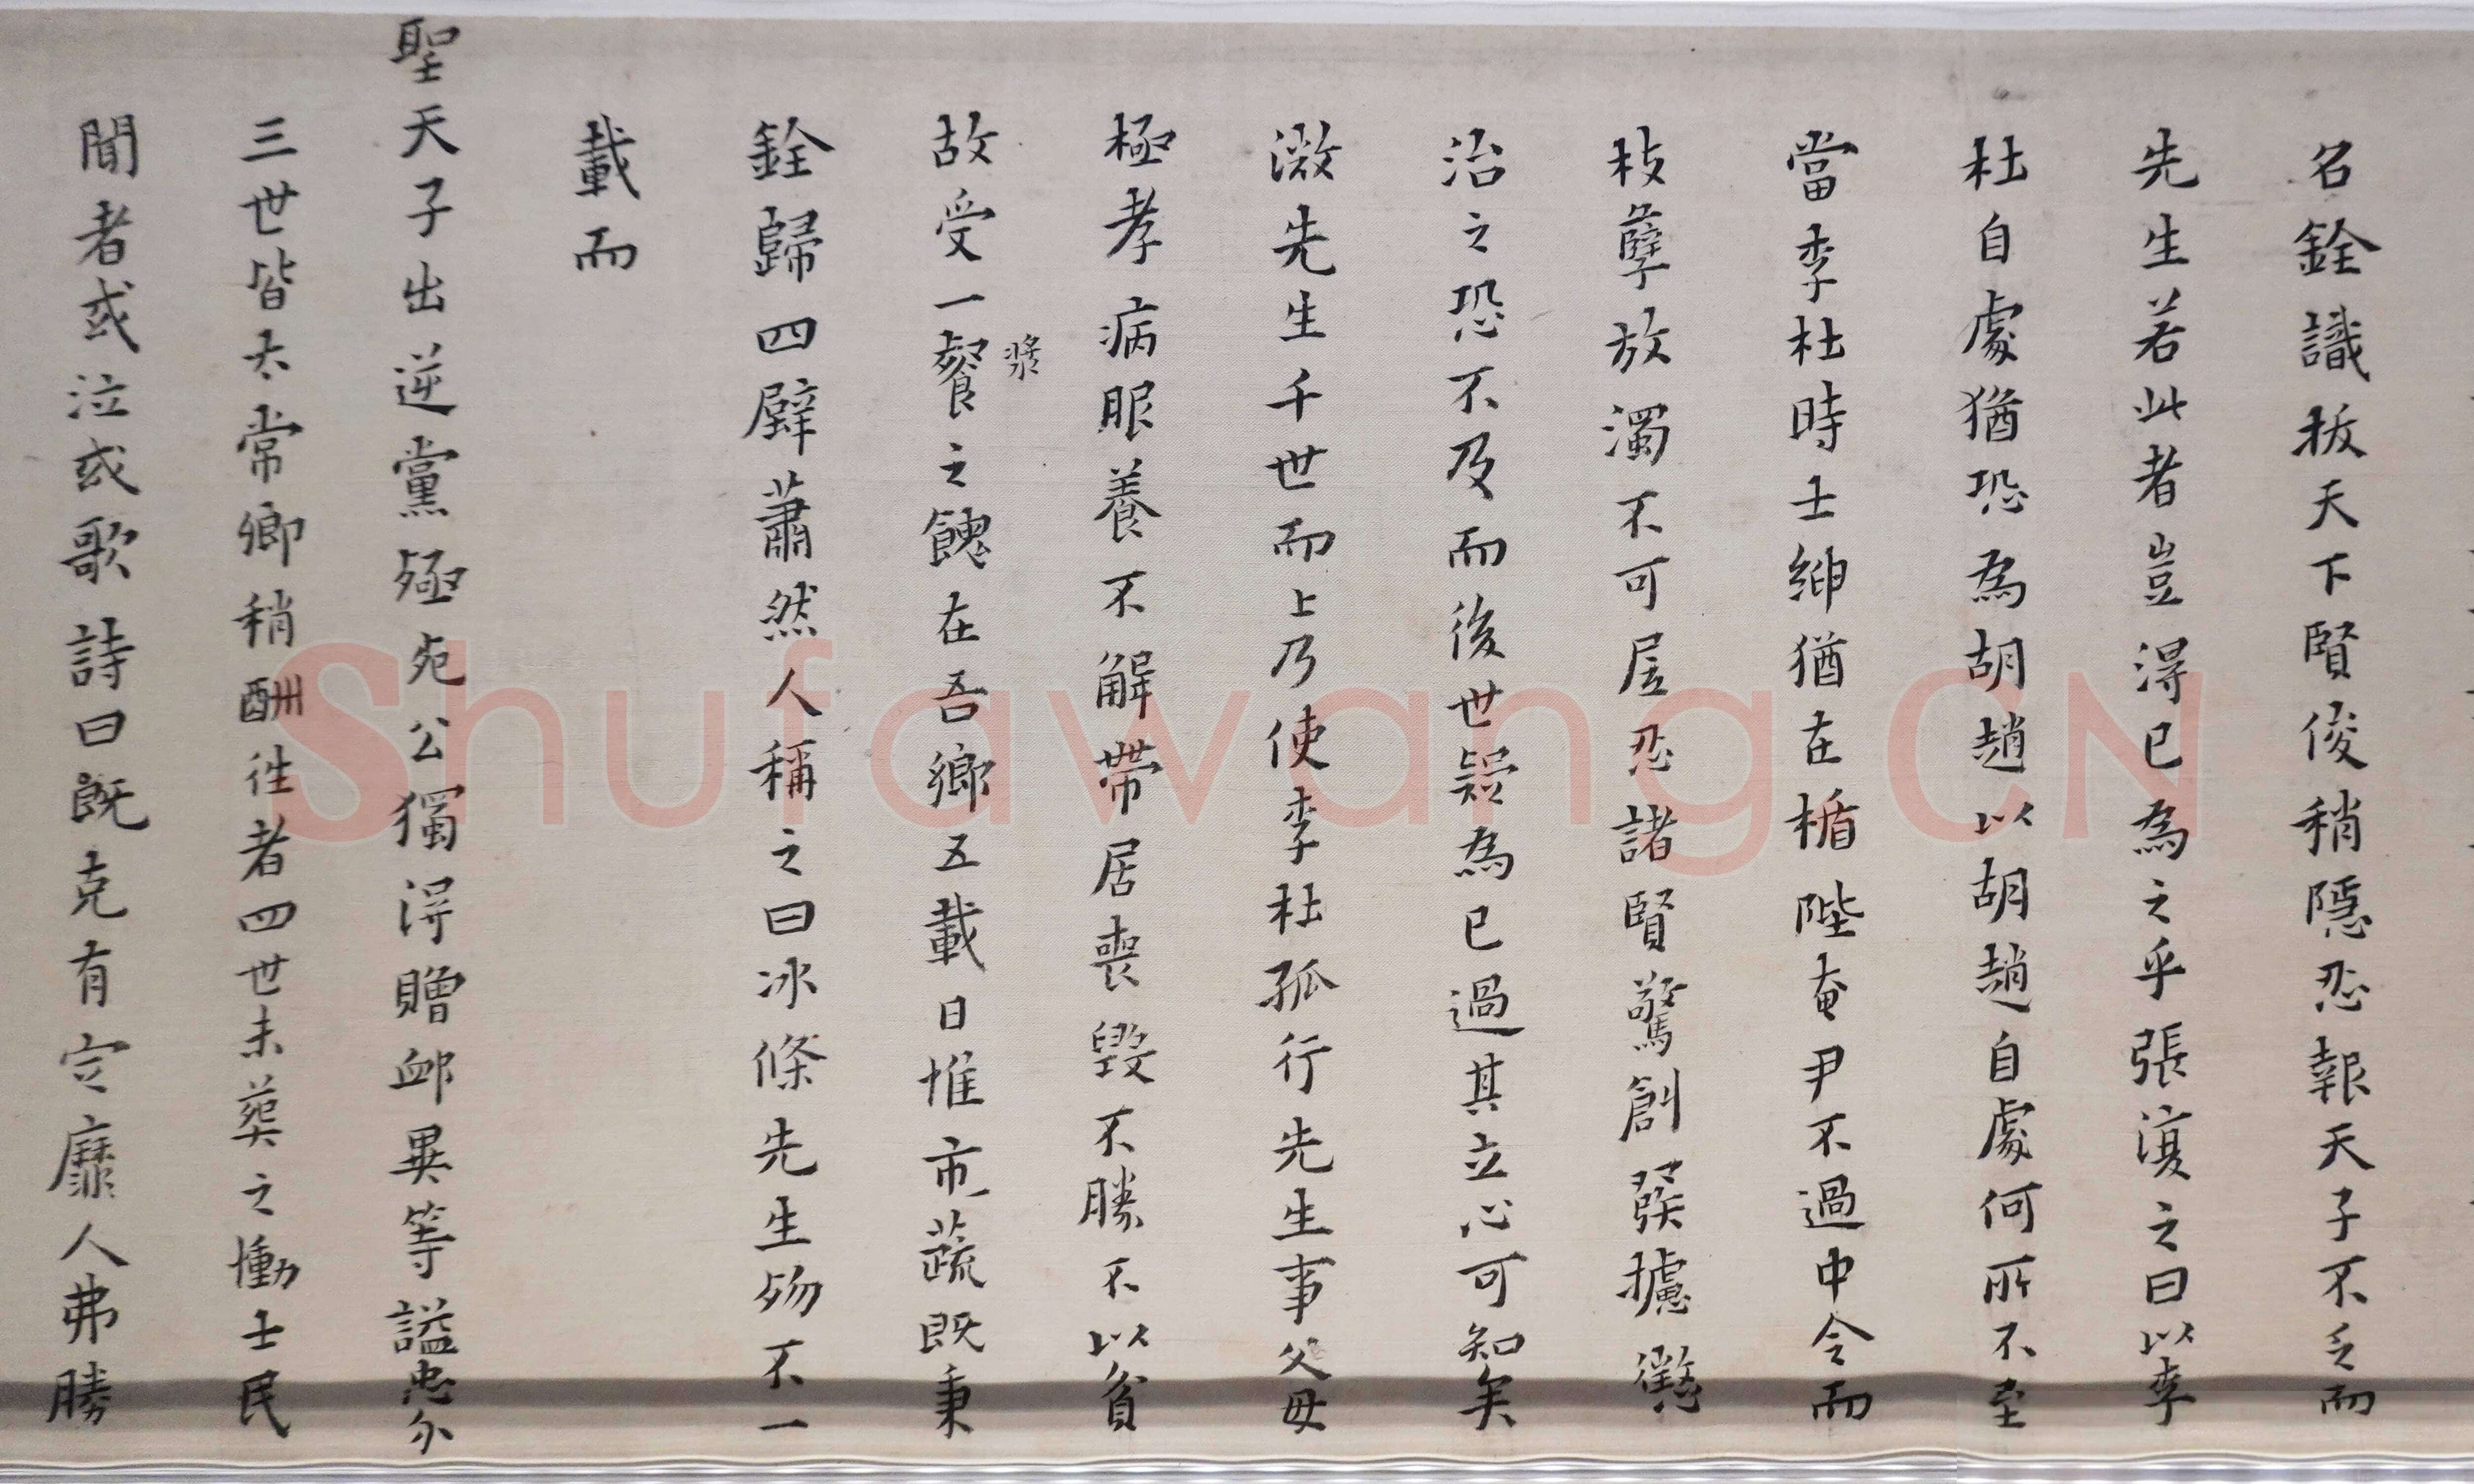 名銓識拔天下賢俊稍隱忍報天子不乏而
先生若此者豈得已為之乎張復之曰以李
杜自處猶恐為胡趙以胡趙自處何所不至
當李杜時士紳猶在楯陛奄尹不過中令而
枝孽放濁不可居忍諸賢驚創彂攄懲
治之恐不及而後世疑為已過其立心可知矣
微先生千世而上乃使李杜孤行先生事父母
極孝病眼養不解帶居喪毀不勝不以貧
故受一餐漿之餽在吾鄉五載日惟市蔬既秉
銓歸四壁蕭然人稱之曰冰條先生歿不一
載而
聖天子出逆黨殛死公獨得贈卹異等諡忠介
三世皆太常卿稍酬徃者四世未葬之慟士民
聞者或泣或歌詩曰既克有定靡人弗勝
Shufawang CN